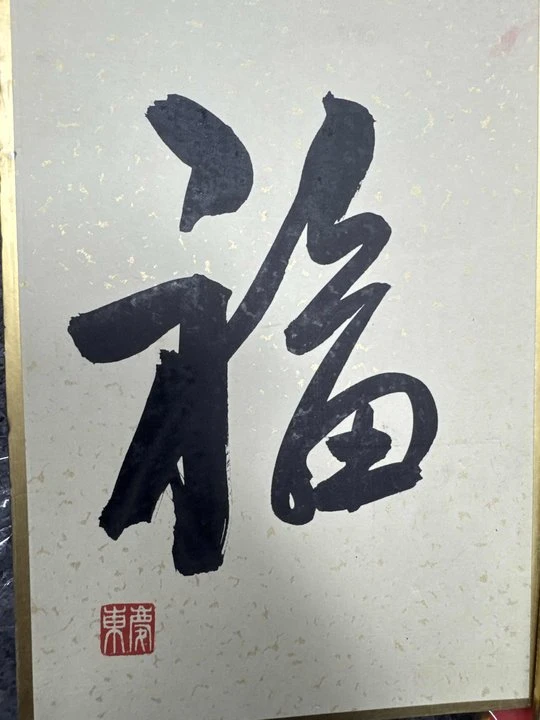 福
慶東